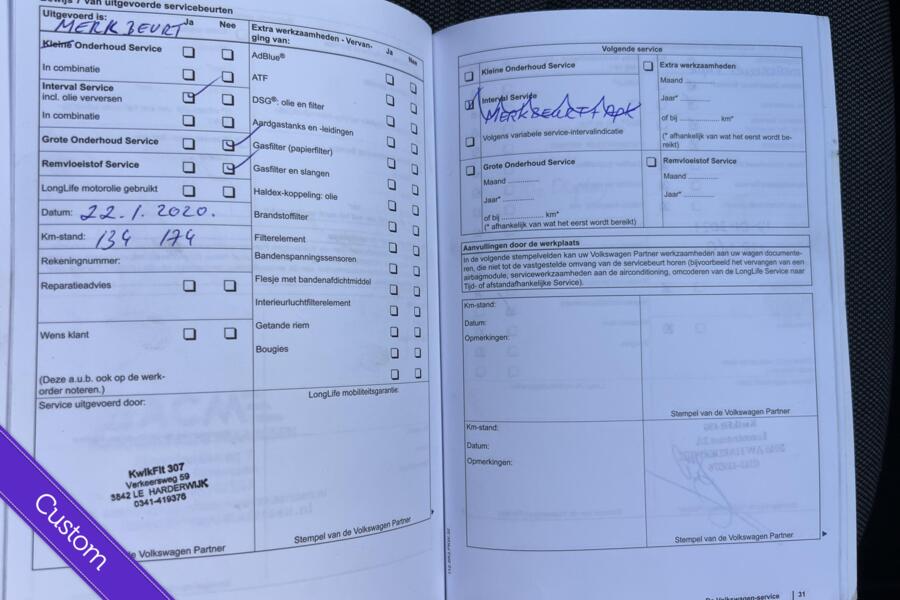 van uitgevoerde servicebeurten
Uitgevoerd is: Ja Nee
MERKBEURT
Kleine Onderhoud Service
In combinatie
Interval Service
incl. olie verversen
In combinatie
Grote Onderhoud Service
Remvloeistof Service
LongLife motorolie gebruikt
Datum: 22.1.2020.
Km-stand: 134 174
Rekeningnummer:
Reparatieadvies
Wens klant
(Deze a.u.b. ook op de werk-
order noteren.)
Service uitgevoerd door:
KwikFit 307
Verkeersweg 59
3842 LE HARDERWIJK
0341-419376
Volkswagen Partner
Extra werkzaamheden - Vervan-
ging van: Ja Nee
AdBlue®
ATF
DSG®: olie en filter
Aardgastanks en -leidingen
Gasfilter (papierfilter)
Gasfilter en slangen
Haldex-koppeling: olie
Brandstoffilter
Filterelement
Bandenspanningssensoren
Flesje met bandenafdichtmiddel
Interieurluchtfilterelement
Getande riem
Bougies
LongLife mobiliteitsgarantie:
Stempel van de Volkswagen Partner
Volgende service
Kleine Onderhoud Service
Interval Service
MERKBEURT+APK
Volgens variabele service-intervalindicatie
Grote Onderhoud Service
Maand ............
Jaar* ............
of bij ...................... km*
(* afhankelijk van wat het eerst wordt bereikt)
Extra werkzaamheden
Maand ............
Jaar* ............
of bij ............... km*
(* afhankelijk van wat het eerst wordt be-
reikt)
Remvloeistof Service
Maand ............
Jaar* ............
Aanvullingen door de werkplaats
In de volgende stempelvelden kan uw Volkswagen Partner werkzaamheden aan uw wagen documente-
ren, die niet tot de vastgestelde omvang van de servicebeurt horen (bijvoorbeeld het vervangen van een
airbagmodule, servicewerkzaamheden aan de airconditioning, omcoderen van de LongLife Service naar
Tijd- of afstandafhankelijke Service).
Km-stand:
Datum:
Opmerkingen:
Stempel van de Volkswagen Partner
Km-stand:
Datum:
Opmerkingen:
Stempel van de Volkswagen Partner
De Volkswagen-service 31
Custom